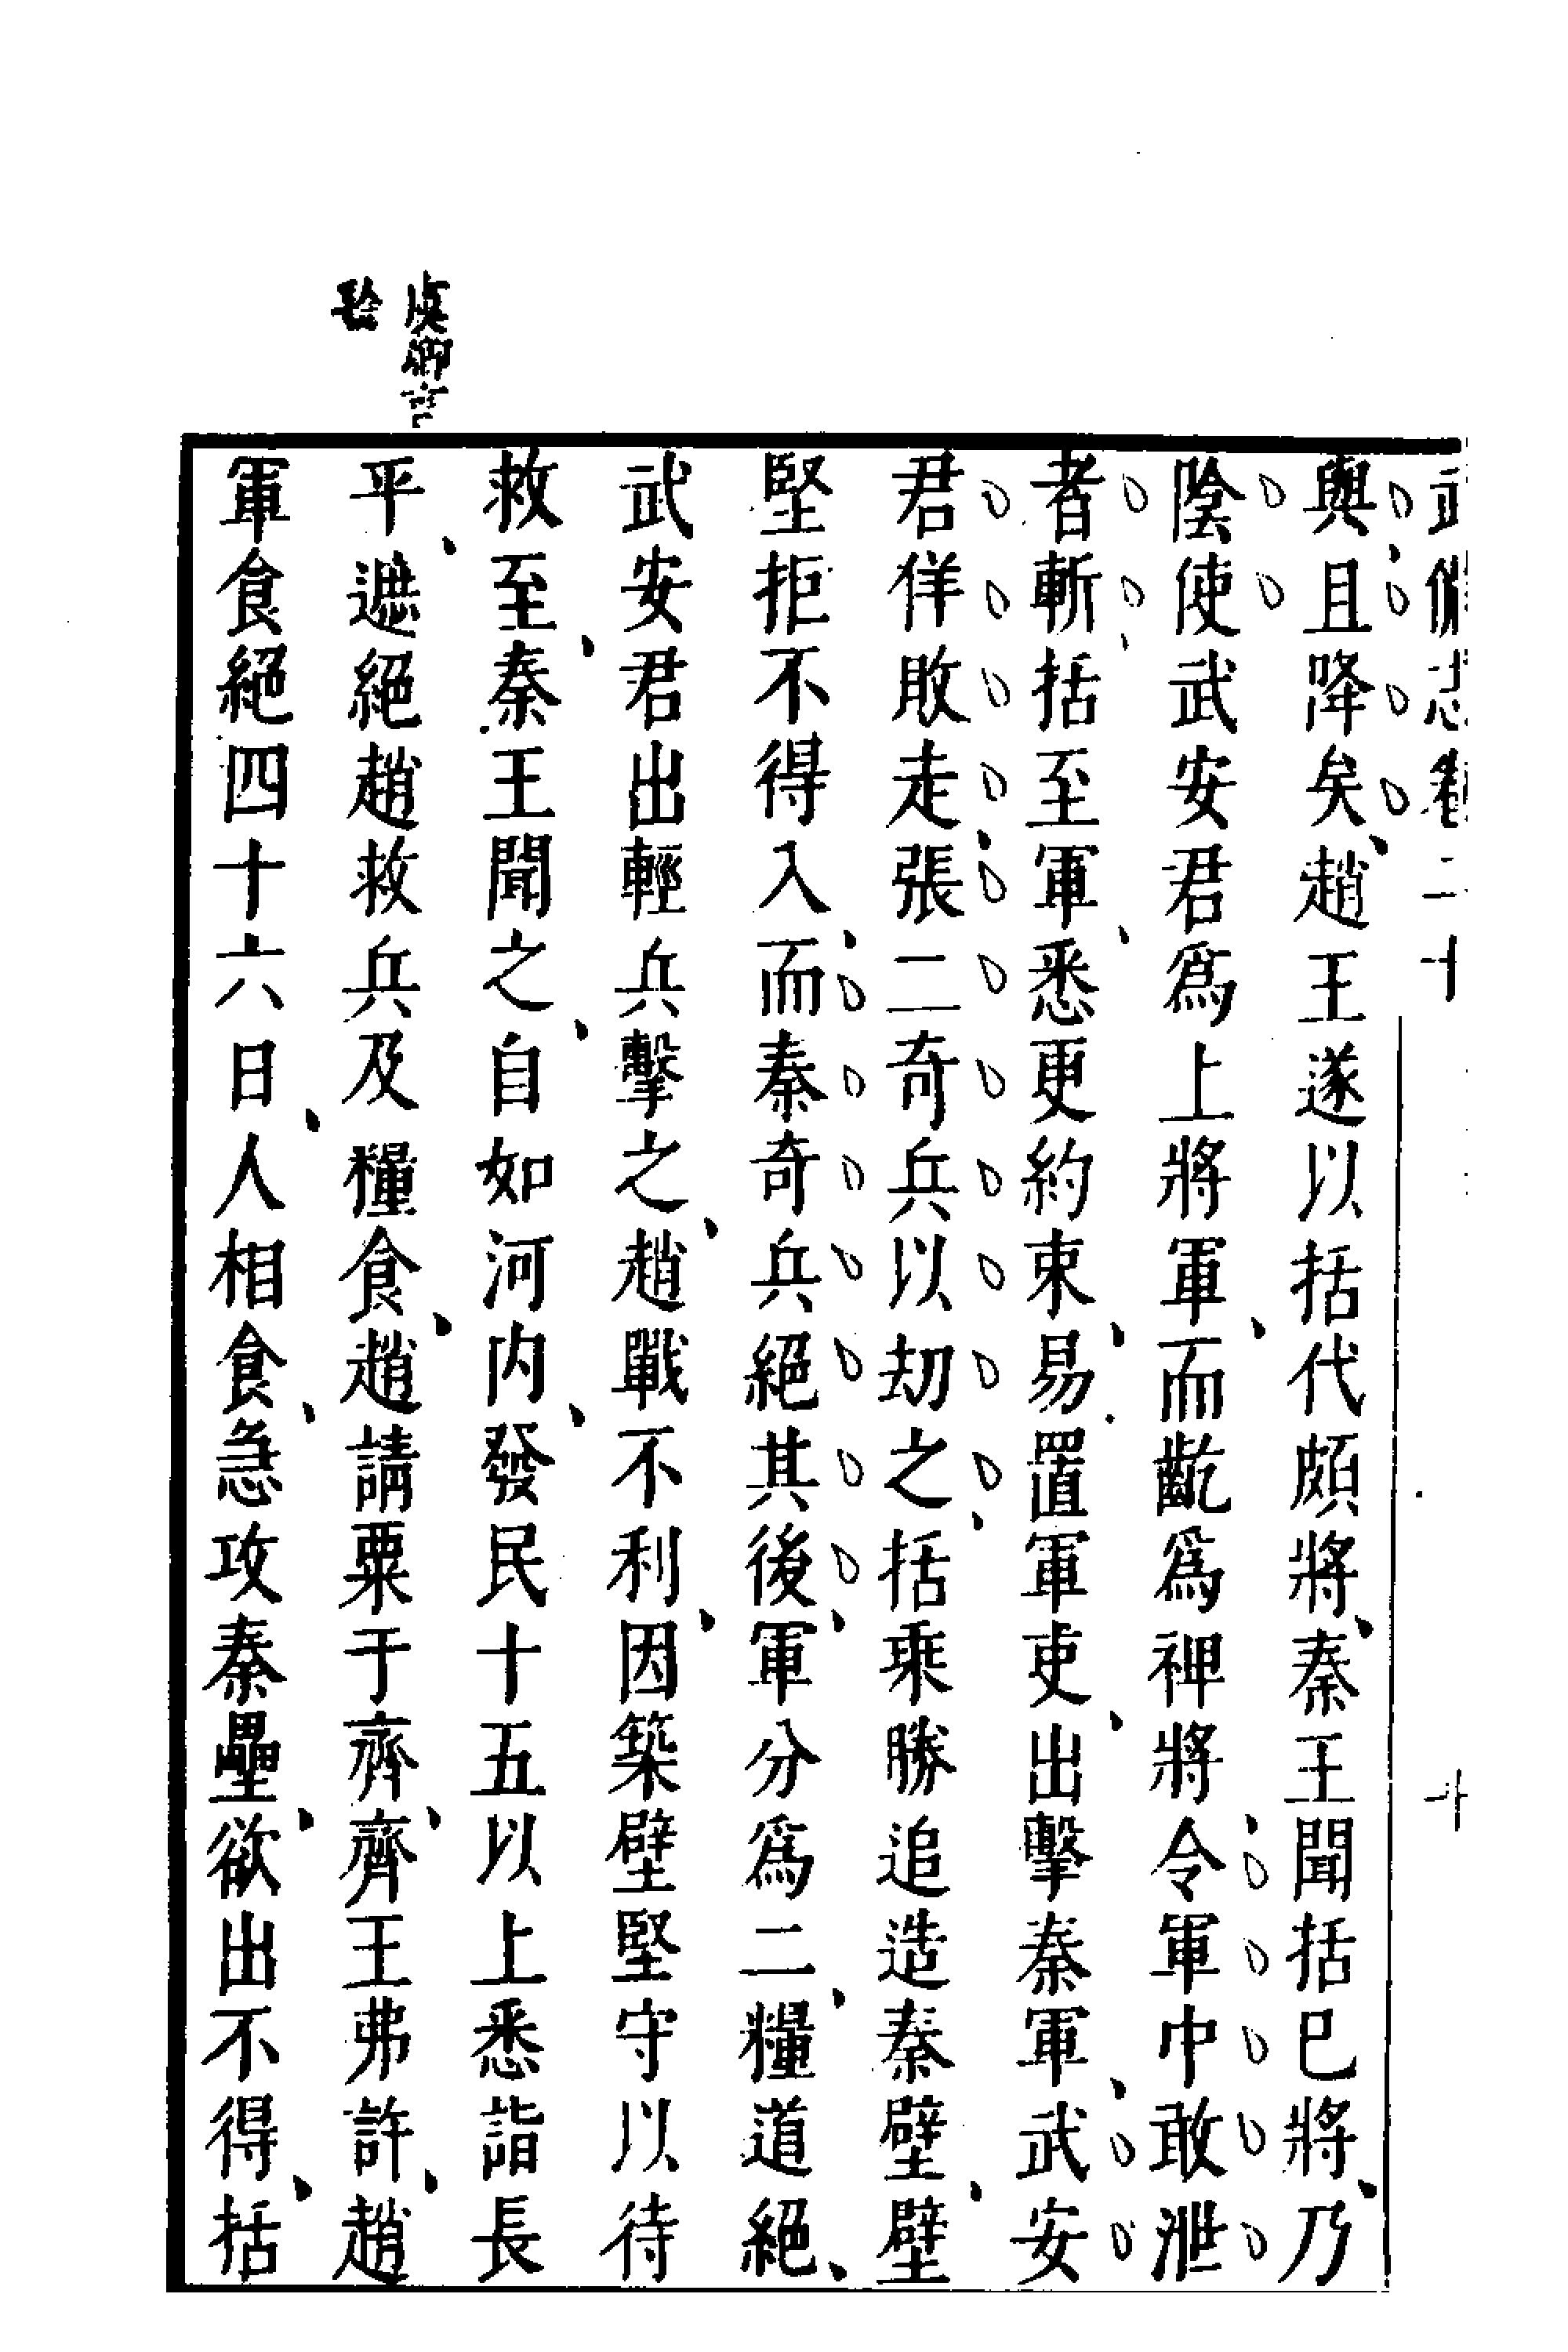 武備志卷二十 十
與且降矣趙王遂以括代頗將秦王聞括已將乃
陰使武安君爲上將軍而齕爲裨將令軍中敢泄
者斬括至軍悉更約束易置軍吏出擊秦軍武安
君佯敗走張二奇兵以劫之括乘勝追造秦壁壁
堅拒不得入而秦奇兵絕其後軍分爲二糧道絕
武安君出輕兵擊之趙戰不利因築壁堅守以待
救至秦王聞之自如河内發民十五以上悉詣長
平遮絕趙救兵及糧食趙請粟于齊齊王弗許趙
軍食絕四十六日人相食急攻秦壘欲出不得括
虞卿言